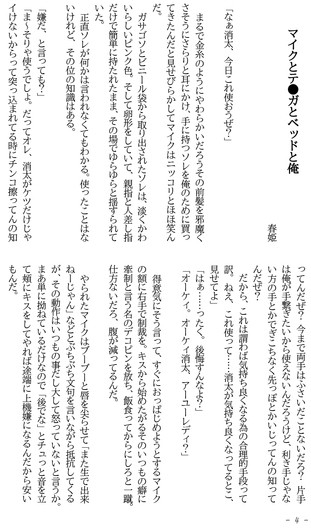 マイクとテ●ガとベッドと俺
春姫
「なぁ消太、今日これ使おうぜ？」
まるで金糸のようにやわらかいだろうその前髪を邪魔く
さそうにさらりと耳にかけ、手に持つソレを俺のために買っ
てきたんだと見せびらかしてマイクはニッコリとほほ笑ん
だ。
ガサゴソとビニール袋から取り出されたソレは、淡くかわ
いらしいピンク色。そして卵形をしていて、親指と人差し指
だけで簡単に持たれたまま、その場でゆらゆらと揺られて
いる。
正直ソレが何かは言われなくてもわかる。使ったことはな
いけれど、その位の知識はある。
「嫌だ、と言っても？」
「まぁそりゃ使うでしょ。だってオレ、消太がケツだけじゃ
イけないからって突っ込まれてる時にチンコ擦ってんの知
ってんだぜ？今まで両手はふさいだことないだろ？片手
は俺が手繋ぎたいから使えないんだろうけど、利き手じゃな
い方の手とかでぎこちなく先っぽとかいじってんの知って
んだぜ？
だから、これは謂わば気持ち良くなる為の合理的手段って
訳。ねぇ、これ使って……消太が気持ち良くなってるとこ、
見せてよ」
「はぁ……ったく。後悔すんなよ？」
「オーケイ。オーケイ消太、アーユーレディ？」
得意気にそう言って、すぐにおっぱじめようとするマイク
の額に右手で制裁を。キスから始めたがるそのいつもの癖に
牽制と言う名のデコピンを放ち、飯食ってからにしろと一蹴。
仕方ないだろ、腹が減ってるんだ。
やられたマイクはブーブーと唇を尖らせて「また生で出来
ねーじゃん」などとぶちぶち文句を言いながら抵抗してくる
が、その動作はいつもの事だし大して怒っていないと言うか。
まあ単に拗ねているだけなので「後でな」とチュッと音を立
て頬にキスをしてやれば途端に上機嫌になるんだから安い
もんだ。
- 4 -